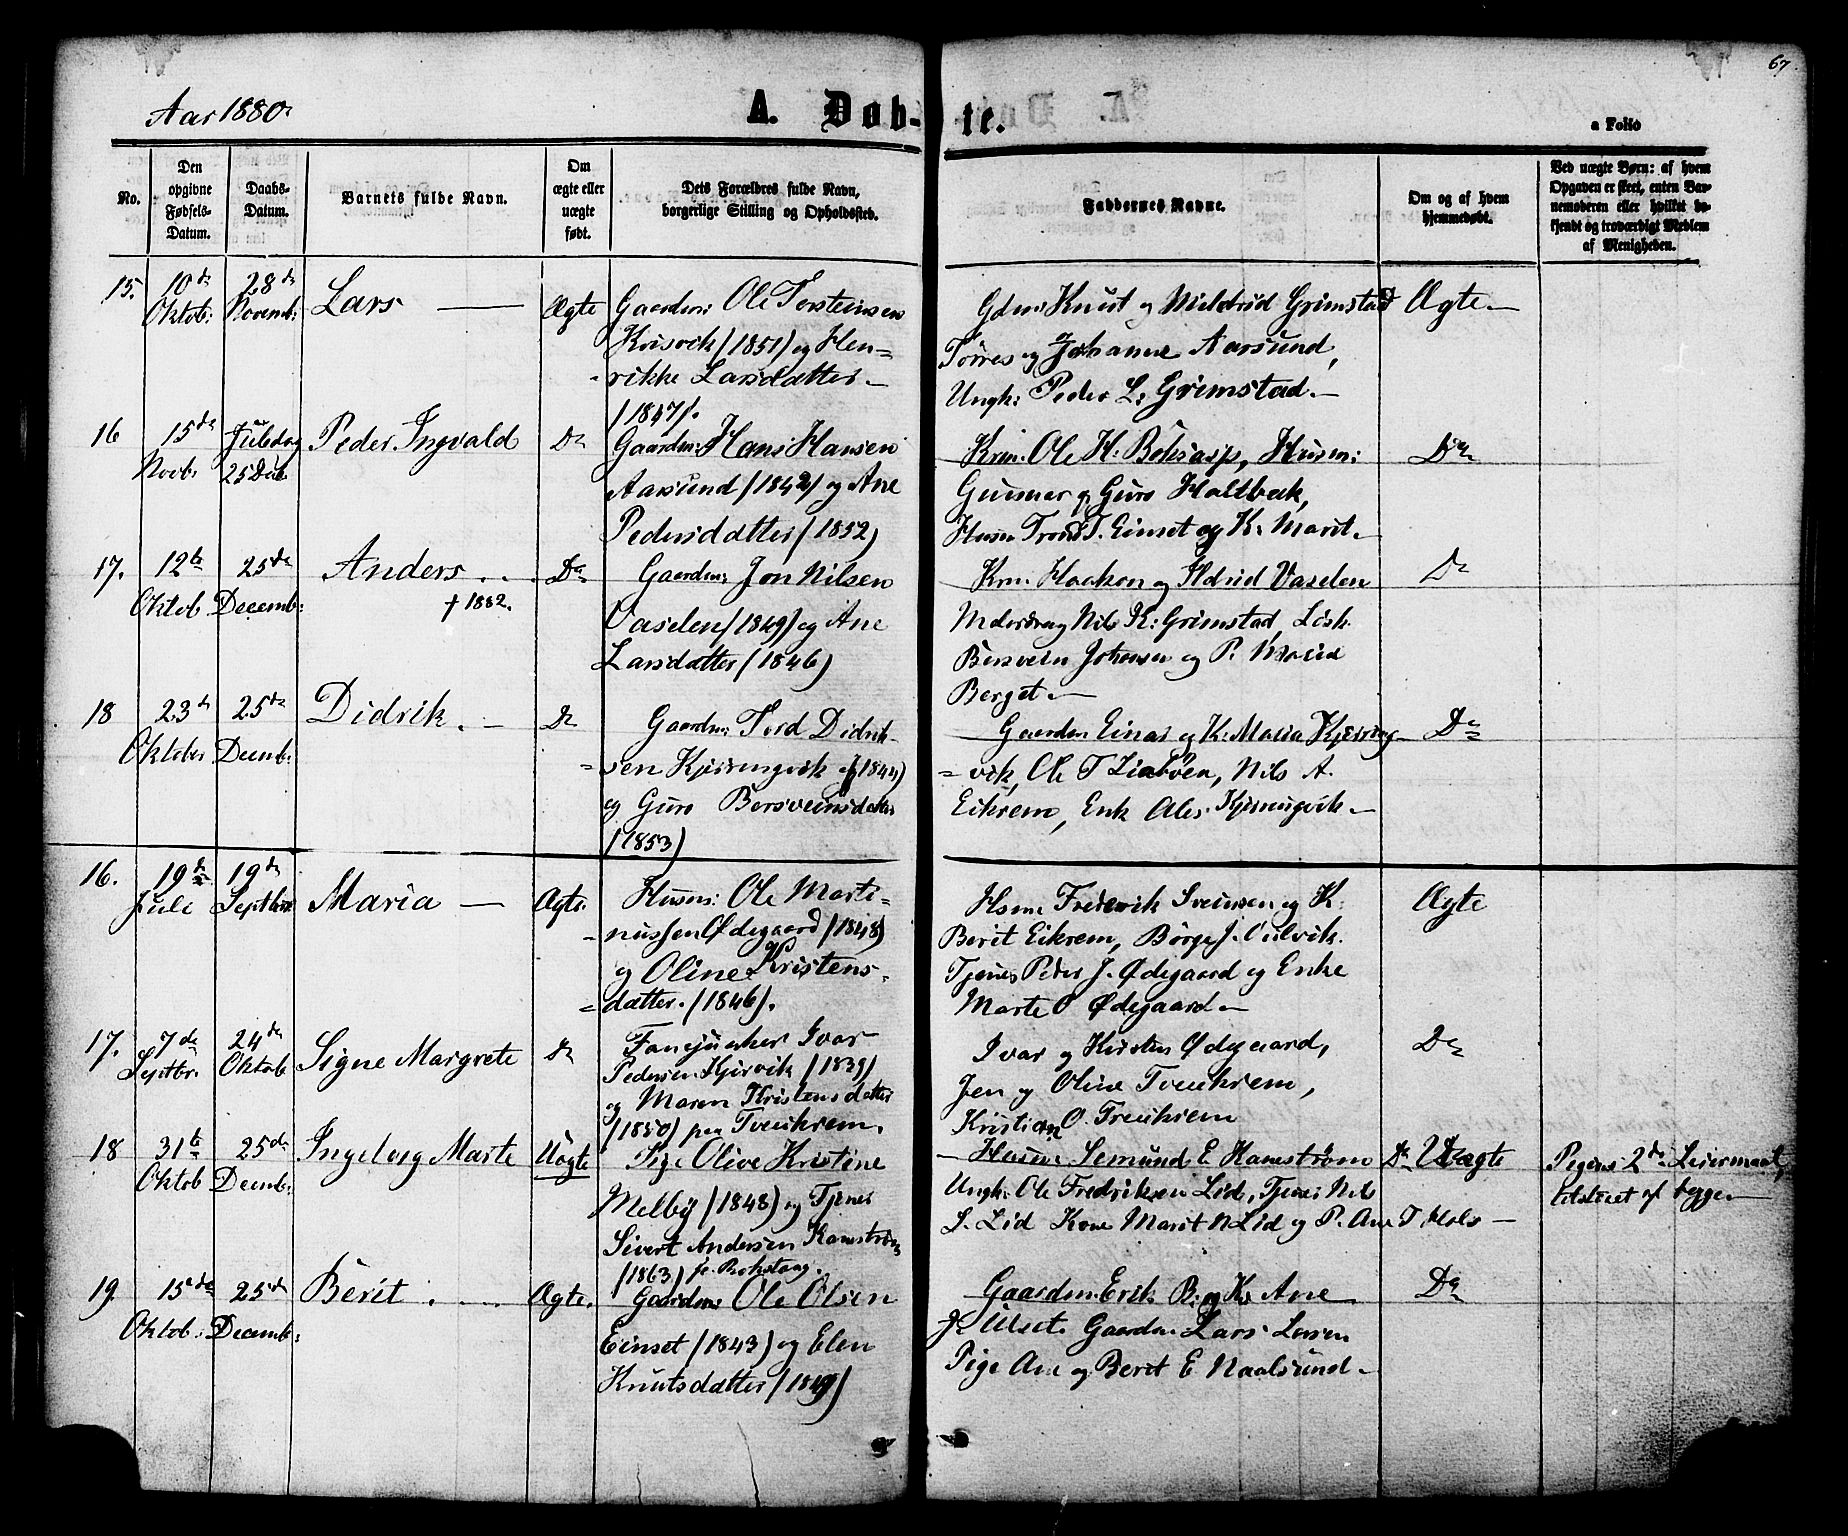 67.
Aar 1880.
A. Døb-te.
a Folio
No.
Den opgivne Fødsels-Datum.
Daabs-Datum.
Barnets fulde Navn.
Om ægte eller uægte født.
Dets Forældres fulde Navn, borgerlige Stilling og Opholdssted.
Faddernes Navne.
Om og af hvem hjemmedøbt.
Ved uægte Børn: af hvem Opgaven er skeet, enten Barnemoderen eller hvilket bekjendt og troværdigt Medlem af Menigheden.
15. 10de Oktob: 28de Novemb: Lars — Ægte
Gaardm: Ole Torsteinsen
Krisvik (1851) og Hen-
rikke Larsdatter —
(1847).
Gdm: Knut og Mildrid Grimstad
Törres og Johanne Aarsund,
Ungk: Peder L: Grimstad.—
Ægte —
16 15de Novb. Juledag 25 Decb. Peder Ingvald Do
Gaardm: Hans Hansen
Aarsund (1842) og Ane
Pedersdatter (1852)
Krm. Ole H: Böhasp, Husm:
Gunnar og Guro Holtbak,
Husm Trond T. Einset og K. Marit.—
Do
17. 12te Oktob 25de Decemb: Anders . . Do
† 1882.
Gaardm: Jon Nilsen
Vaselen (1849) og Ane
Larsdatter (1846)
Krm. Haakon og Ildrid Vaselen
Nils K: Grimstad, Losk.
Bersvein Johnsen og P. Maria
Berget.—
Do
18 23de Oktober 25de Decemb: Didrik. — Do
Gaardm: Tord Didrik-
sen Kjøringvik (1844)
og Guro Bersveinsdatter
(1853)
Gaardm. Einar og K. Maria Kjøring-
vik, Ole T Liabøen, Nils A.
Eikrem, Enk Ales Kjøringvik.—
Do
16. 19de Juli 19de Septbr Maria — Ægte.
Husm: Ole Marti-
nussen Ødegaard (1848)
og Oline Kristens-
datter. (1846).
Hsm. Frederik Sveinsen og K.
Berit Eikrem, Børge J. Oulvik.
Tjener Peder J. Ødegaard og Enke
Marte O Ødegaard —
Ægte
17. 7de Septbr. 24de Oktob Signe Margrete Do
Fanejunker Ivar
Pedersen Hjervik (1839)
og Maren Kristensdatter
(1850) paa Tveikrem.
Ivar og Kirsten Ødegaard,
Jen og Oline Tveikrem,
Kristian O. Treikrem
Do
18 31te Oktob 25de Decemb: Ingeborg Marte Uægte
Pige Olive Kristine
Melby (1848) og Tjener
Sivert Andersen Hamstrøm
(1863) fr. Bokstaag.
Husm. Semund E Hamstrøm
Ungk. Ole Fredriksen Lid, Tjener Nils
S. Lid Kone Marit N Lid og P. Ane T Hols —
Do Uægte
Pigens 2de Leiermaal,
tilstaaet af begge —
19 15de Oktob. 25de Decemb: Berit . — Ægte.
Gaardm: Ole Olsen
Einset (1843) og Elen
Knutsdatter (1849)
Gaardm. Erik R. og K. Ane
J. Ulset. Gaardm. Lars Larsen
Pige Ane og Beret E Naalsund —
Do